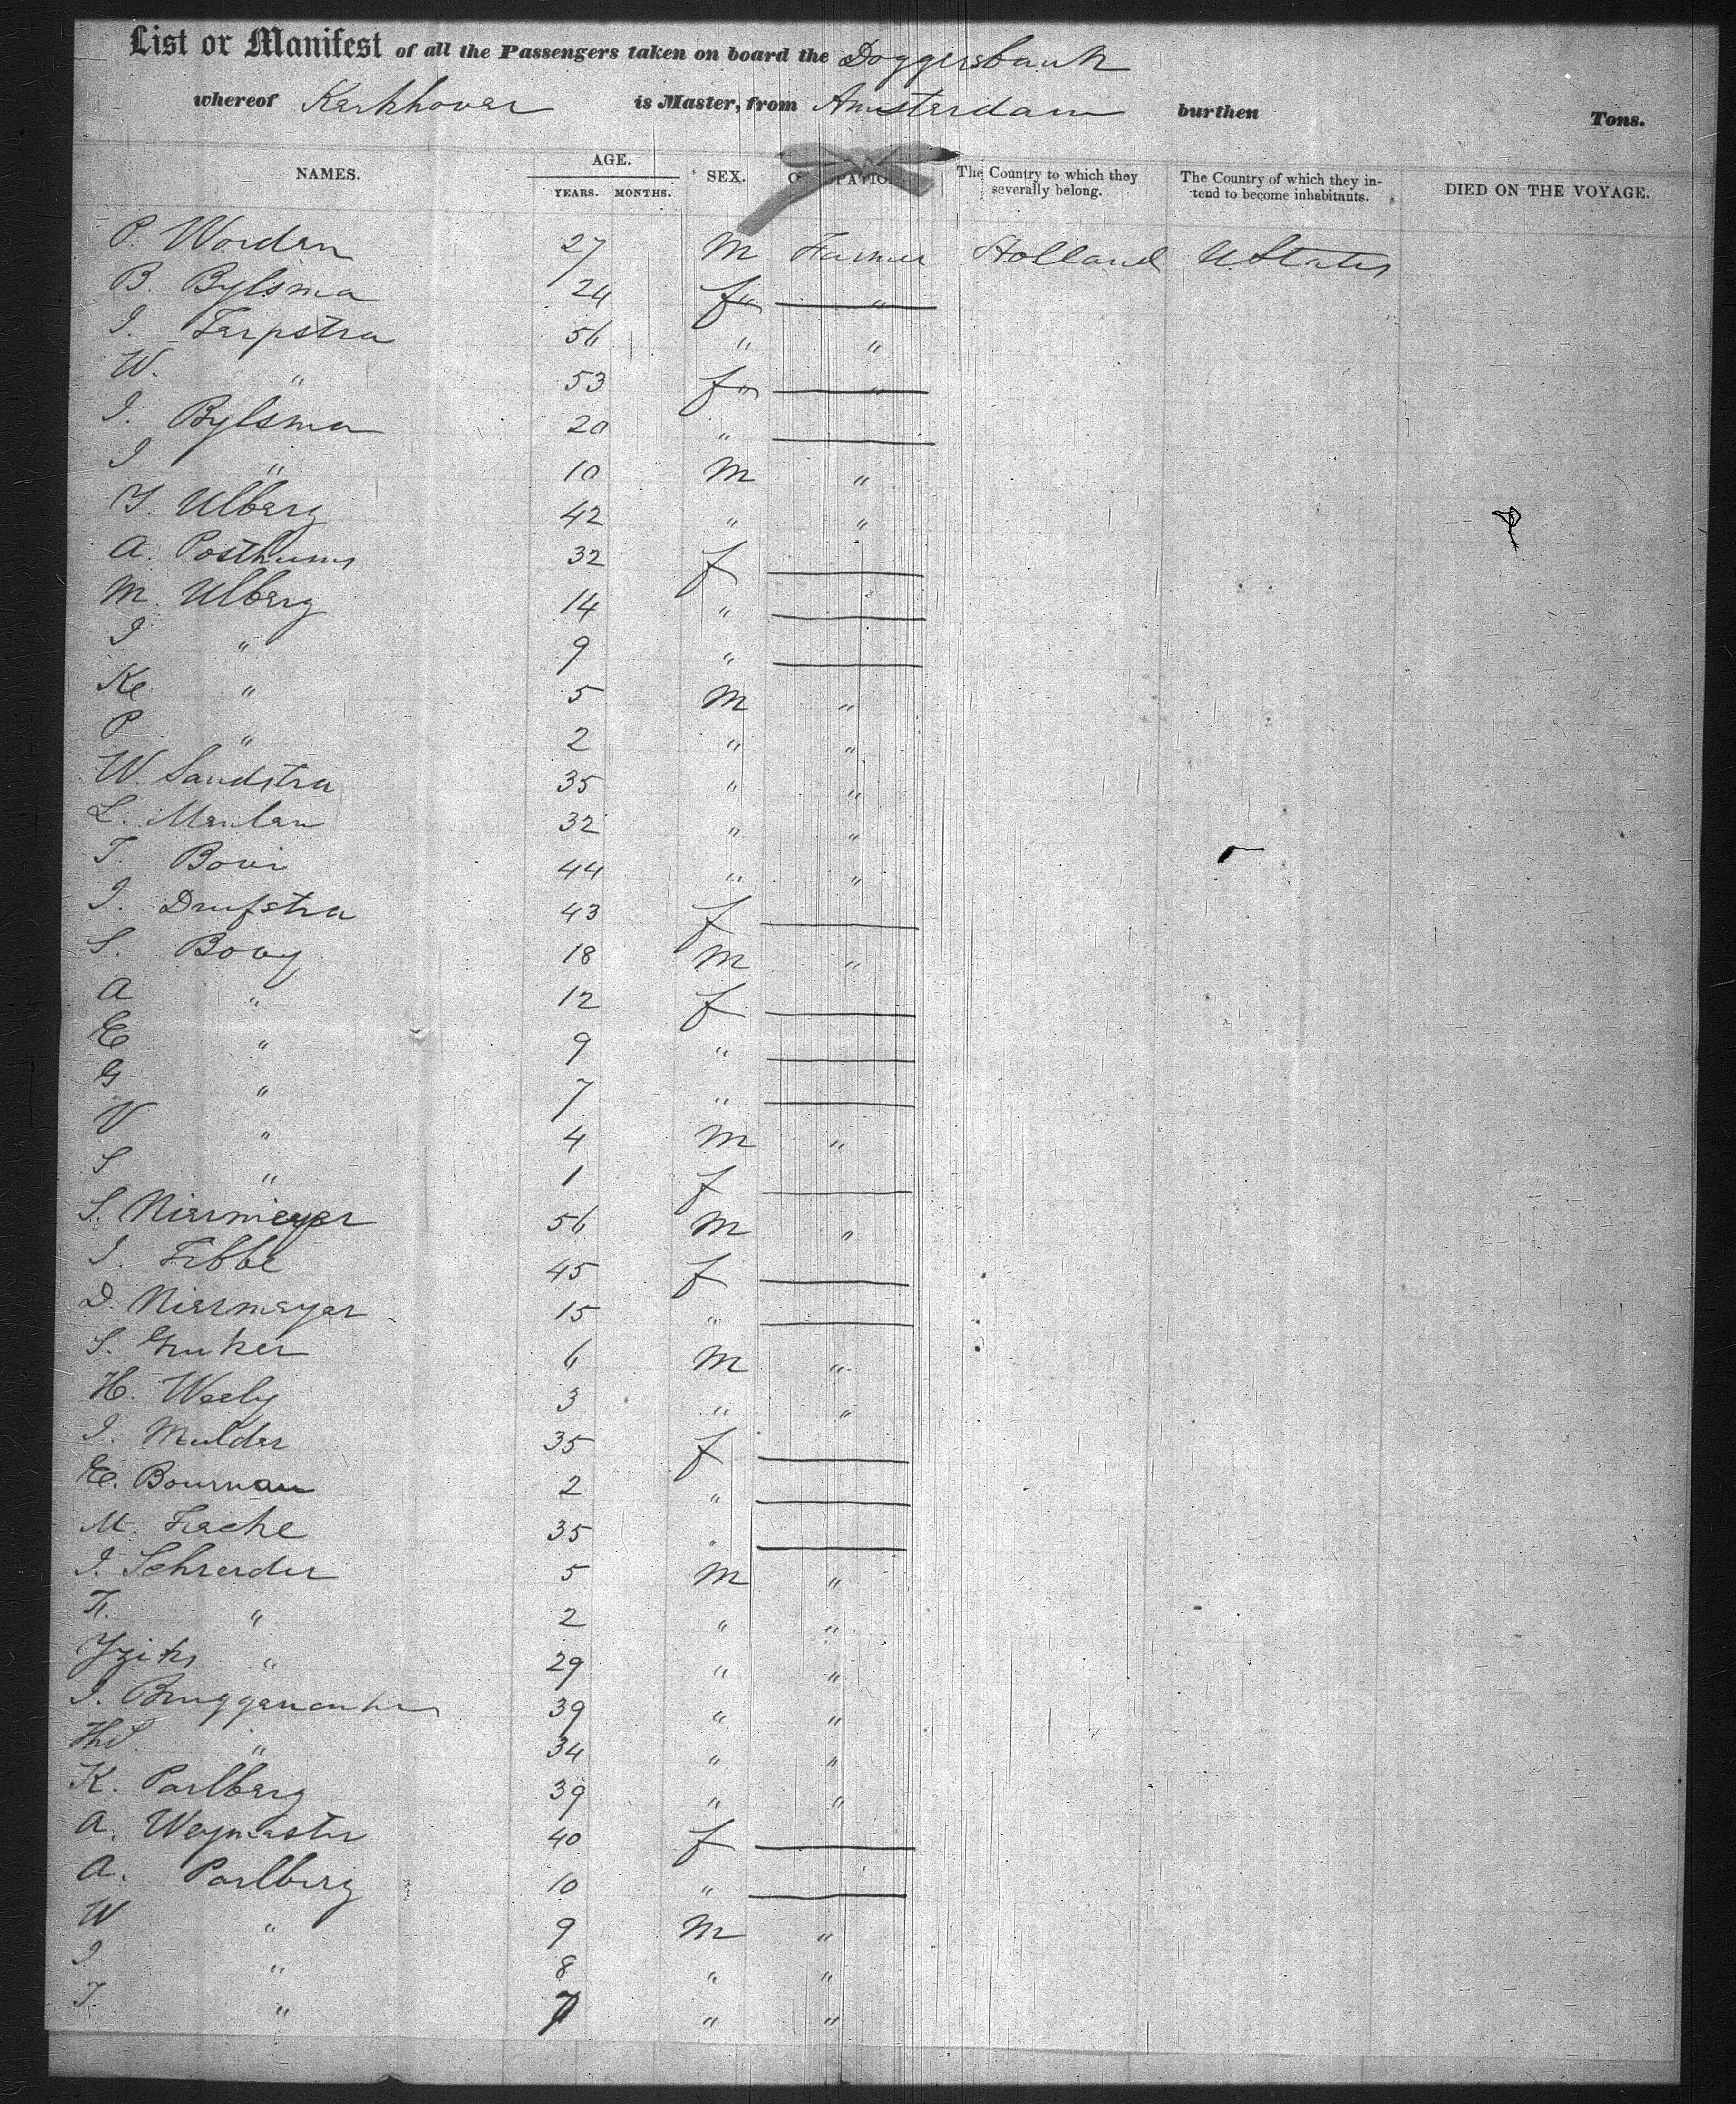 List or Manifest of all the Passengers taken on board the Doggersbank
whereof Kerkhover is Master, from Amsterdam burthen Tons.
NAMES. AGE. YEARS. MONTHS. SEX. OCCUPATION The Country to which they severally belong. The Country of which they intend to become inhabitants. DIED ON THE VOYAGE.
P. Worden 27 M Farmer Holland U States
B. Bylsma 24 f " "
I. Terpstra 56 " "
W. " 53 f " "
I. Bylsma 20 "
I " 10 M "
Y. Ulberg 42 " "
A. Posthums 32 f
M. Ulberg 14 "
I " 9 "
Ke " 5 M "
P " 2 " "
W. Sandstra 35 " "
L. Menlen 32 " "
T. Bovi 44 " "
I. Drufstra 43 f
S. Bovy 18 M "
A " 12 f
E " 9 "
G " 7 "
V " 4 M "
S " 1 f
S. Niermeyer 56 M "
I. Fibbe 45 f
D. Niermeyer 15 "
S. 6 M "
H. Weely 3 " "
I. Mulder 35 f
E. Bourman 2 "
M. Feche 35 "
I. Schreider 5 M "
Ti. " 2 " "
" 29 " "
I. 39 " "
" 34 " "
K. Parlberg 39 " "
A. Weymester 40 f
A. Parlberg 10 "
W " 9 M "
I " 8 " "
T " 7 " "